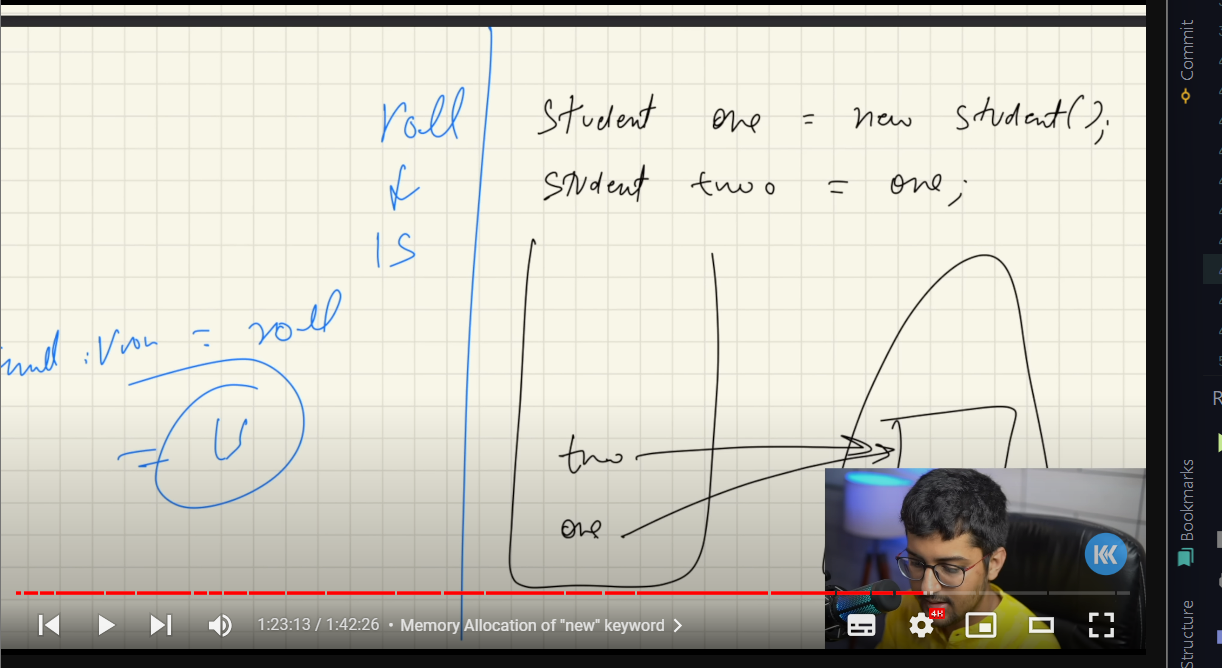 roll
15
Student one = new Student();
Student two = one;
= roll
15
two
one
1:23:13 / 1:42:26 • Memory Allocation of "new" keyword
4K
KK
Commit
Bookmarks
Structure